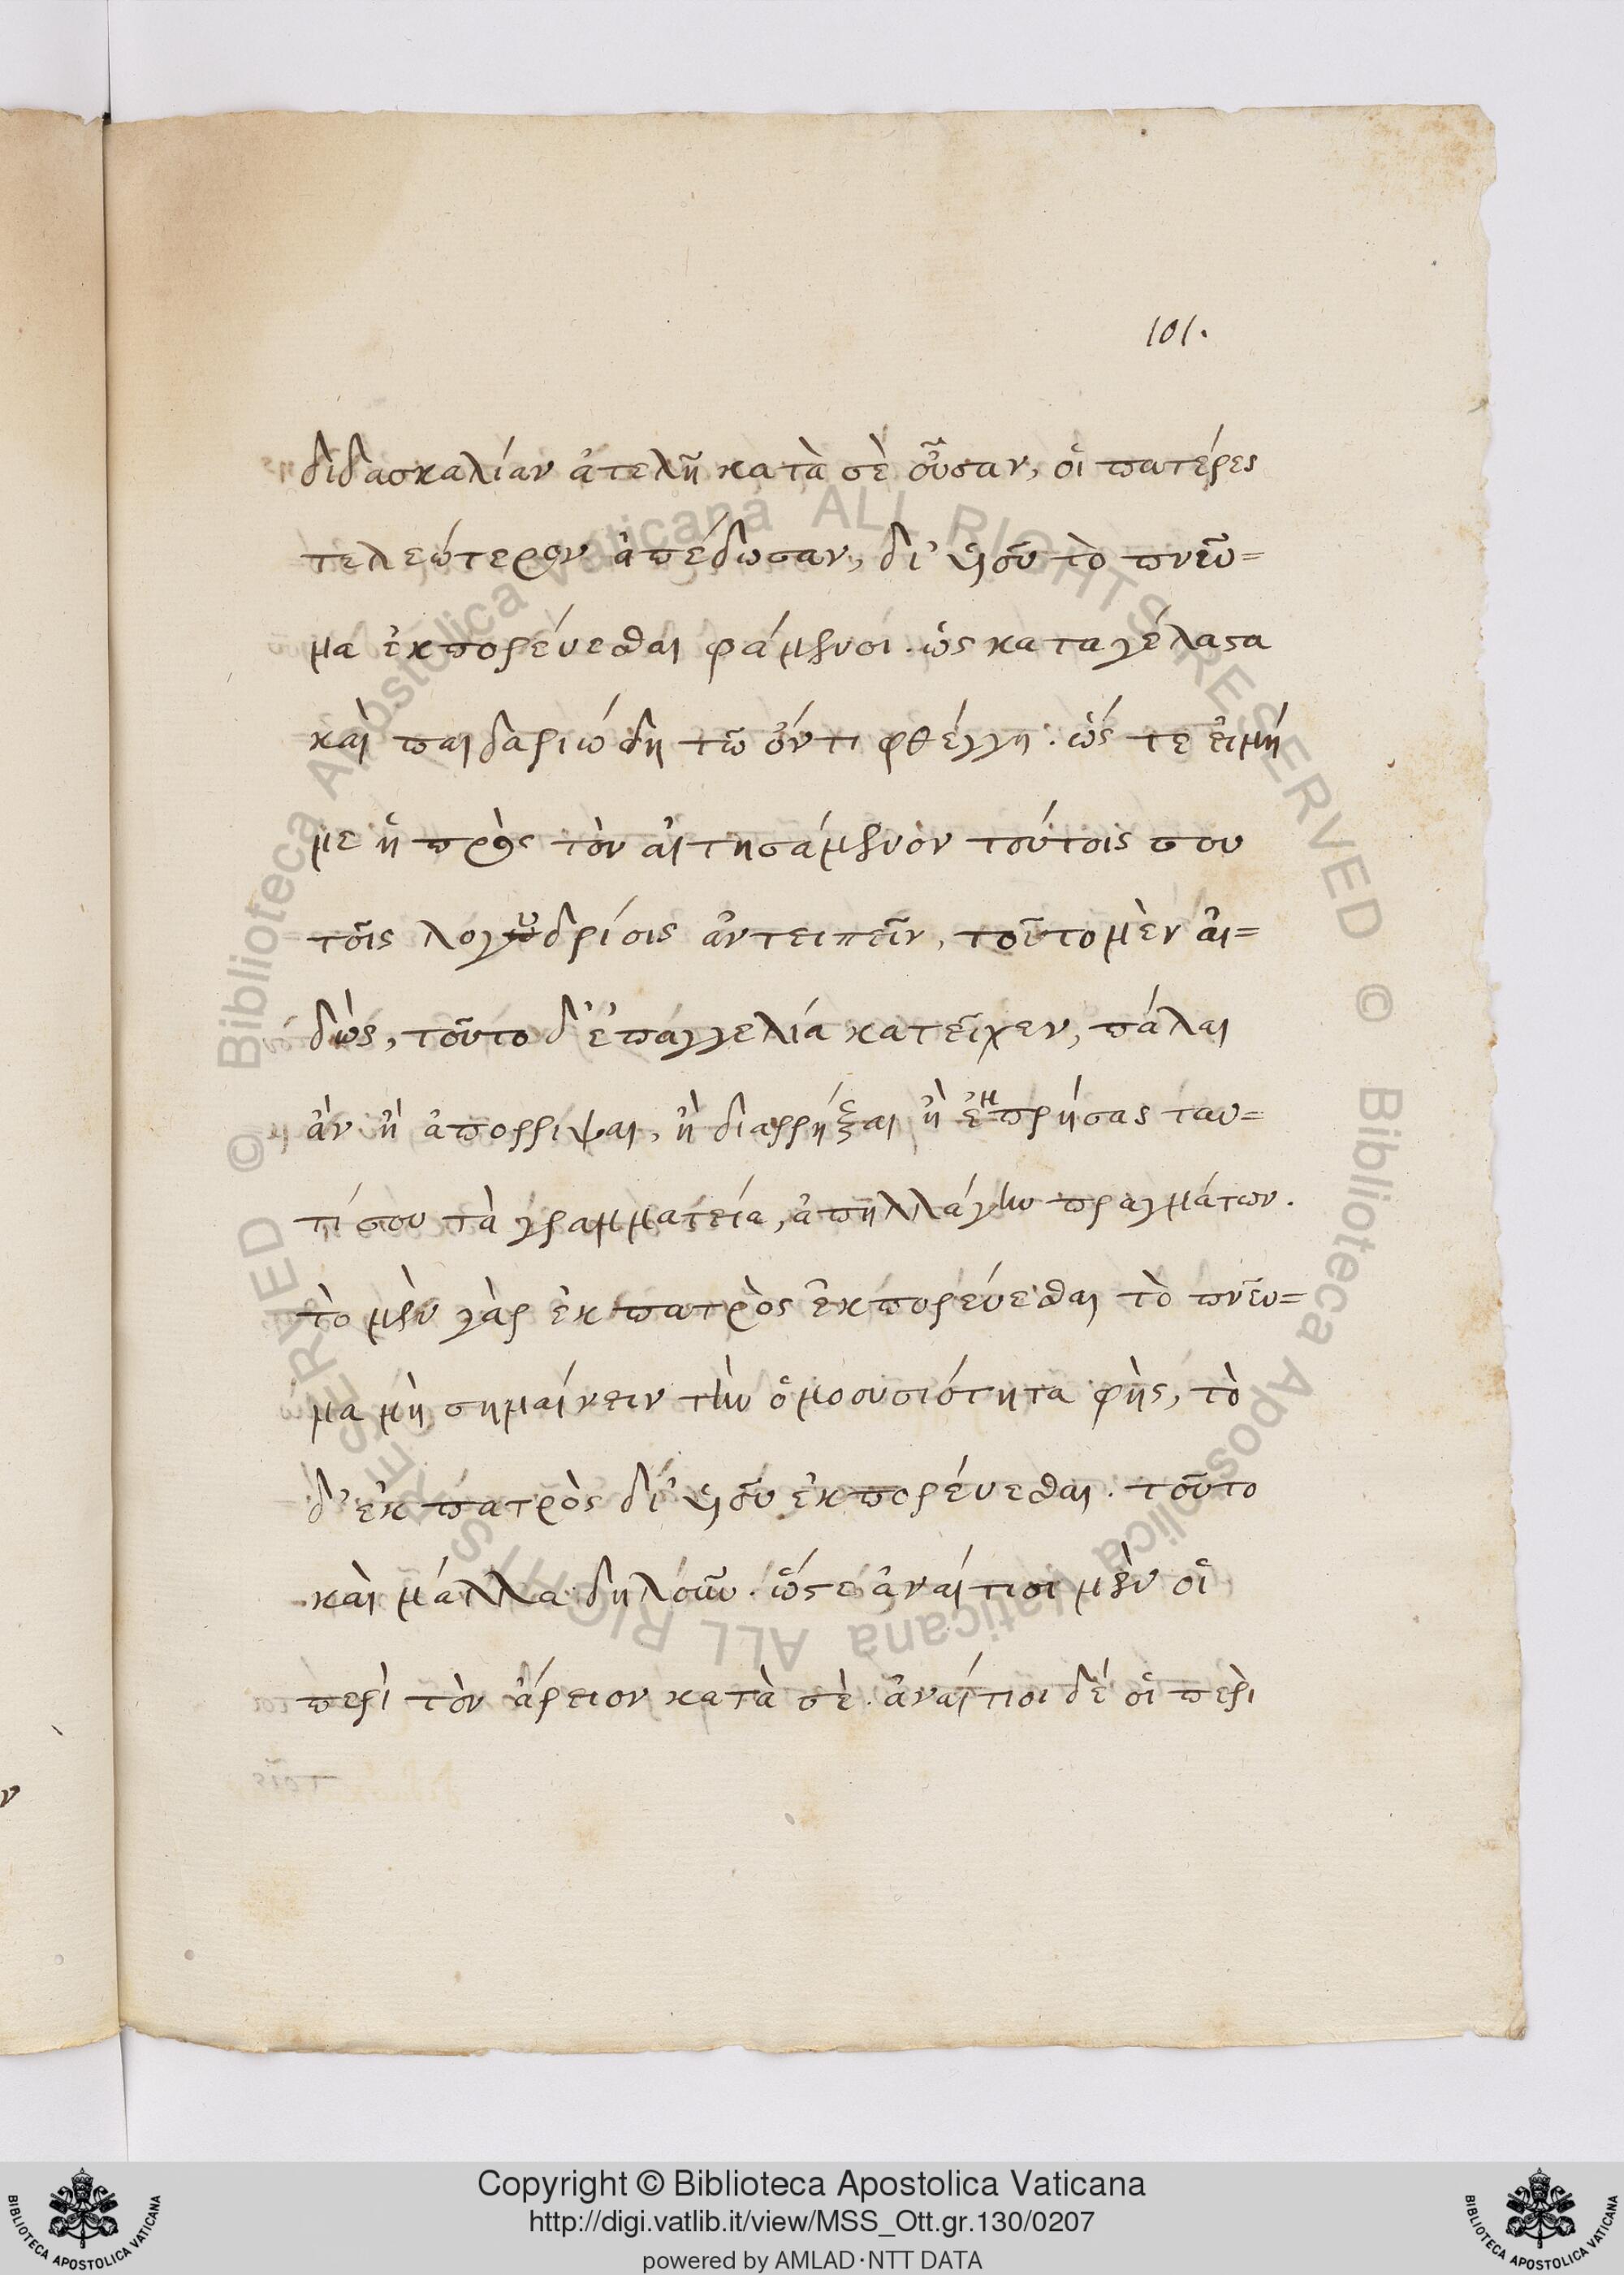 101.
διδασκαλίαν ἀτελῆ κατὰ σὲ οὖσαν, οἱ πατέρες
τελεώτερον ἀπέδωσαν, δι' ὑιοῦ τὸ πνεῦ=
μα ἐκπορέυεσθαι φάμενοι. ὡς καταγέλαστα
καὶ παιδαριώδη τῶ ὄντι φθέγγη. ὥς τε εἰμή
με ἡ πρὸς τὸν αἰτησάμενὸν τούτοις σου
τοῖς λογυδρίοις ἀντειπεῖν, τοῦτο μὲν ἀι=
δὼς, τοῦτο δ' ἐπαγγελία κατεῖχεν, πάλαι
ἀν ἢ ἀπορριψαι, ἢ διαρρήξαι ἢ ἐμπρήσας ταυ=
τί σου τὰ γραμματεία, ἀπηλλάγην πραγμάτων.
τὸ μὲν γὰρ ἐκ πατρὸς ἐκπορέυεσθαι τὸ πνεῦ=
μα μὴ σημαίνειν τὴν ὁμοουσιότητα φὴς, τὸ
δ' ἐκ πατρὸς δι' ὑιοῦ ἐκπορέυεσθαι. τοῦτο
καὶ μάλλα δηλοῦν. ὥστε ἀναίτιοι μὲν οἱ
περὶ τὸν ἄρειον κατὰ σὲ. ἀναίτιοι δέ οἱ περὶ
Copyright © Biblioteca Apostolica Vaticana
http://digi.vatlib.it/view/MSS_Ott.gr.130/0207
powered by AMLAD·NTT DATA
BIBLIOTECA APOSTOLICA VATICANA
BIBLIOTECA APOSTOLICA VATICANA
© Biblioteca Apostolica Vaticana ALL RIGHTS RESERVED © Biblioteca Apostolica Vaticana ALL RIGHTS RESERVED